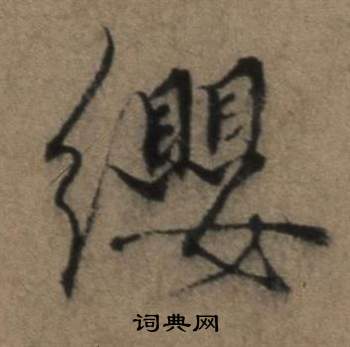 纓
词典网